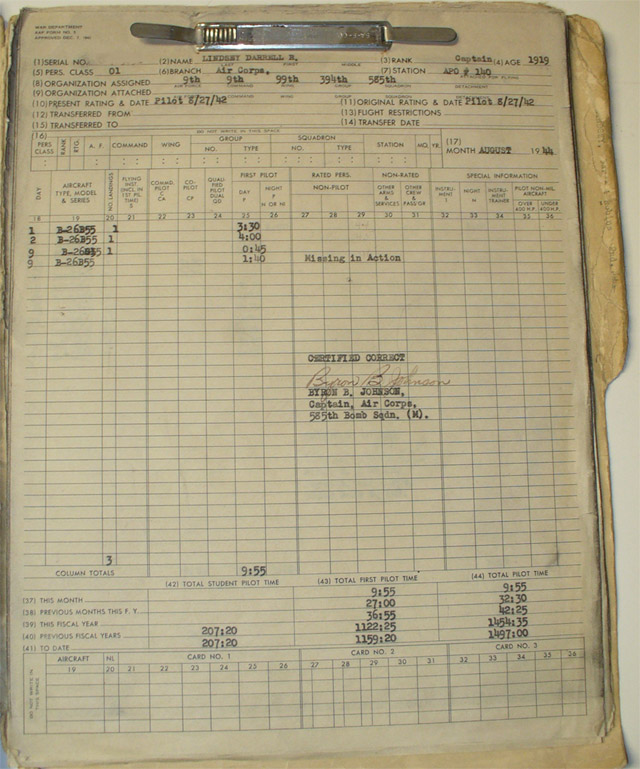 WAR DEPARTMENT
AAF FORM NO. 5
APPROVED DEC. 7
(1) SERIAL NO. (2) NAME LINDSEY DARRELL R. (3) RANK Captain (4) AGE 1919
LAST FIRST MIDDLE
(5) PERS. CLASS 01 (6) BRANCH Air Corps, (7) STATION APO # 140
(8) ORGANIZATION ASSIGNED 9th 9th 99th 394th 585th
AIR FORCE COMMAND WING GROUP SQUADRON DETACHMENT
(9) ORGANIZATION ATTACHED
(10) PRESENT RATING & DATE Pilot 8/27/42 (11) ORIGINAL RATING & DATE Pilot 8/27/42
(12) TRANSFERRED FROM (13) FLIGHT RESTRICTIONS
(15) TRANSFERRED TO (14) TRANSFER DATE
DO NOT WRITE IN THIS SPACE
(16) PERS CLASS RANK RTG. A. F. COMMAND WING GROUP NO. TYPE SQUADRON NO. TYPE STATION MO. YR. (17) MONTH AUGUST 1944
DAY AIRCRAFT TYPE, MODEL & SERIES NO. LANDINGS FLYING INST. (INCL. IN 1ST PIL. TIME) S COMMD. PILOT C CA CO-PILOT CP QUALI-FIED PILOT DUAL QD FIRST PILOT DAY P NIGHT P N OR NI RATED PERS. NON-PILOT NON-RATED OTHER ARMS & SERVICES OTHER CREW & PASS'GR SPECIAL INFORMATION INSTRU-MENT I NIGHT N INSTRU-MENT TRAINER PILOT NON-MIL. AIRCRAFT OVER 400 H.P. UNDER 400 H.P.
18 19 20 21 22 23 24 25 26 27 28 29 30 31 32 33 34 35 36
1 B-26B55 1 3:30
2 B-26B55 1 4:00
9 B-26B55 1 0:45
9 B-26B55 1:40 Missing in Action
CERTIFIED CORRECT
Byron B. Johnson
BYRON B. JOHNSON,
Captain, Air Corps,
585th Bomb Sqdn. (M).
3
COLUMN TOTALS 9:55
(42) TOTAL STUDENT PILOT TIME (43) TOTAL FIRST PILOT TIME (44) TOTAL PILOT TIME
(37) THIS MONTH 9:55 9:55
(38) PREVIOUS MONTHS THIS F. Y. 27:00 32:30
(39) THIS FISCAL YEAR 36:55 42:25
(40) PREVIOUS FISCAL YEARS 207:20 1122:25 1454:35
(41) TO DATE 207:20 1159:20 1497:00
AIRCRAFT NL CARD NO. 1 CARD NO. 2 CARD NO. 3
19 20 21 22 23 24 25 26 27 28 29 30 31 32 33 34 35 36
DO NOT WRITE IN THIS SPACE